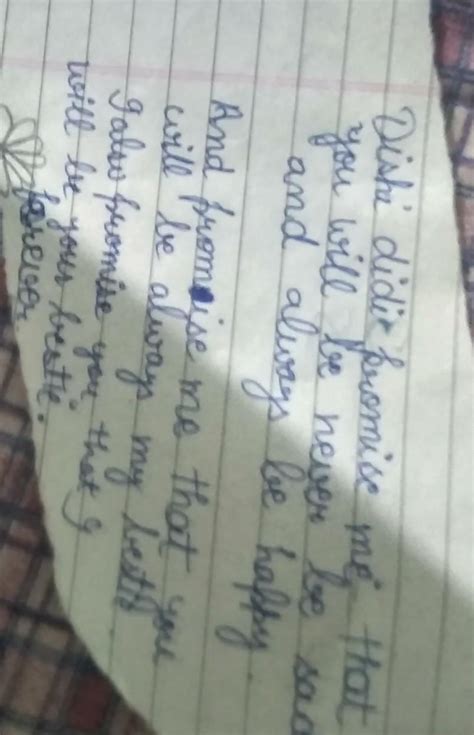 Dishi didi promise me that
you will be never be sad
and always be happy
And promise me that you
will be always my bestie
I also promise you that I
will be your bestie.
forever